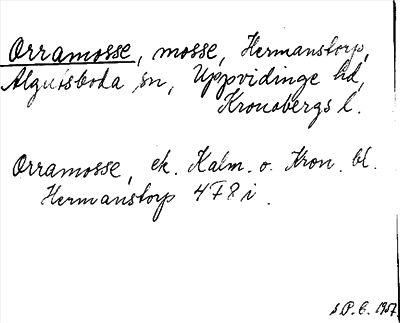 Orramosse, mosse, Hermanstorp,
Algutsboda sn, Uppvidinge hd,
Kronobergs l.
Orramosse, ek. Kalm. o. Kron. bl.
Hermanstorp 4F8i.
S.P.E. 1957